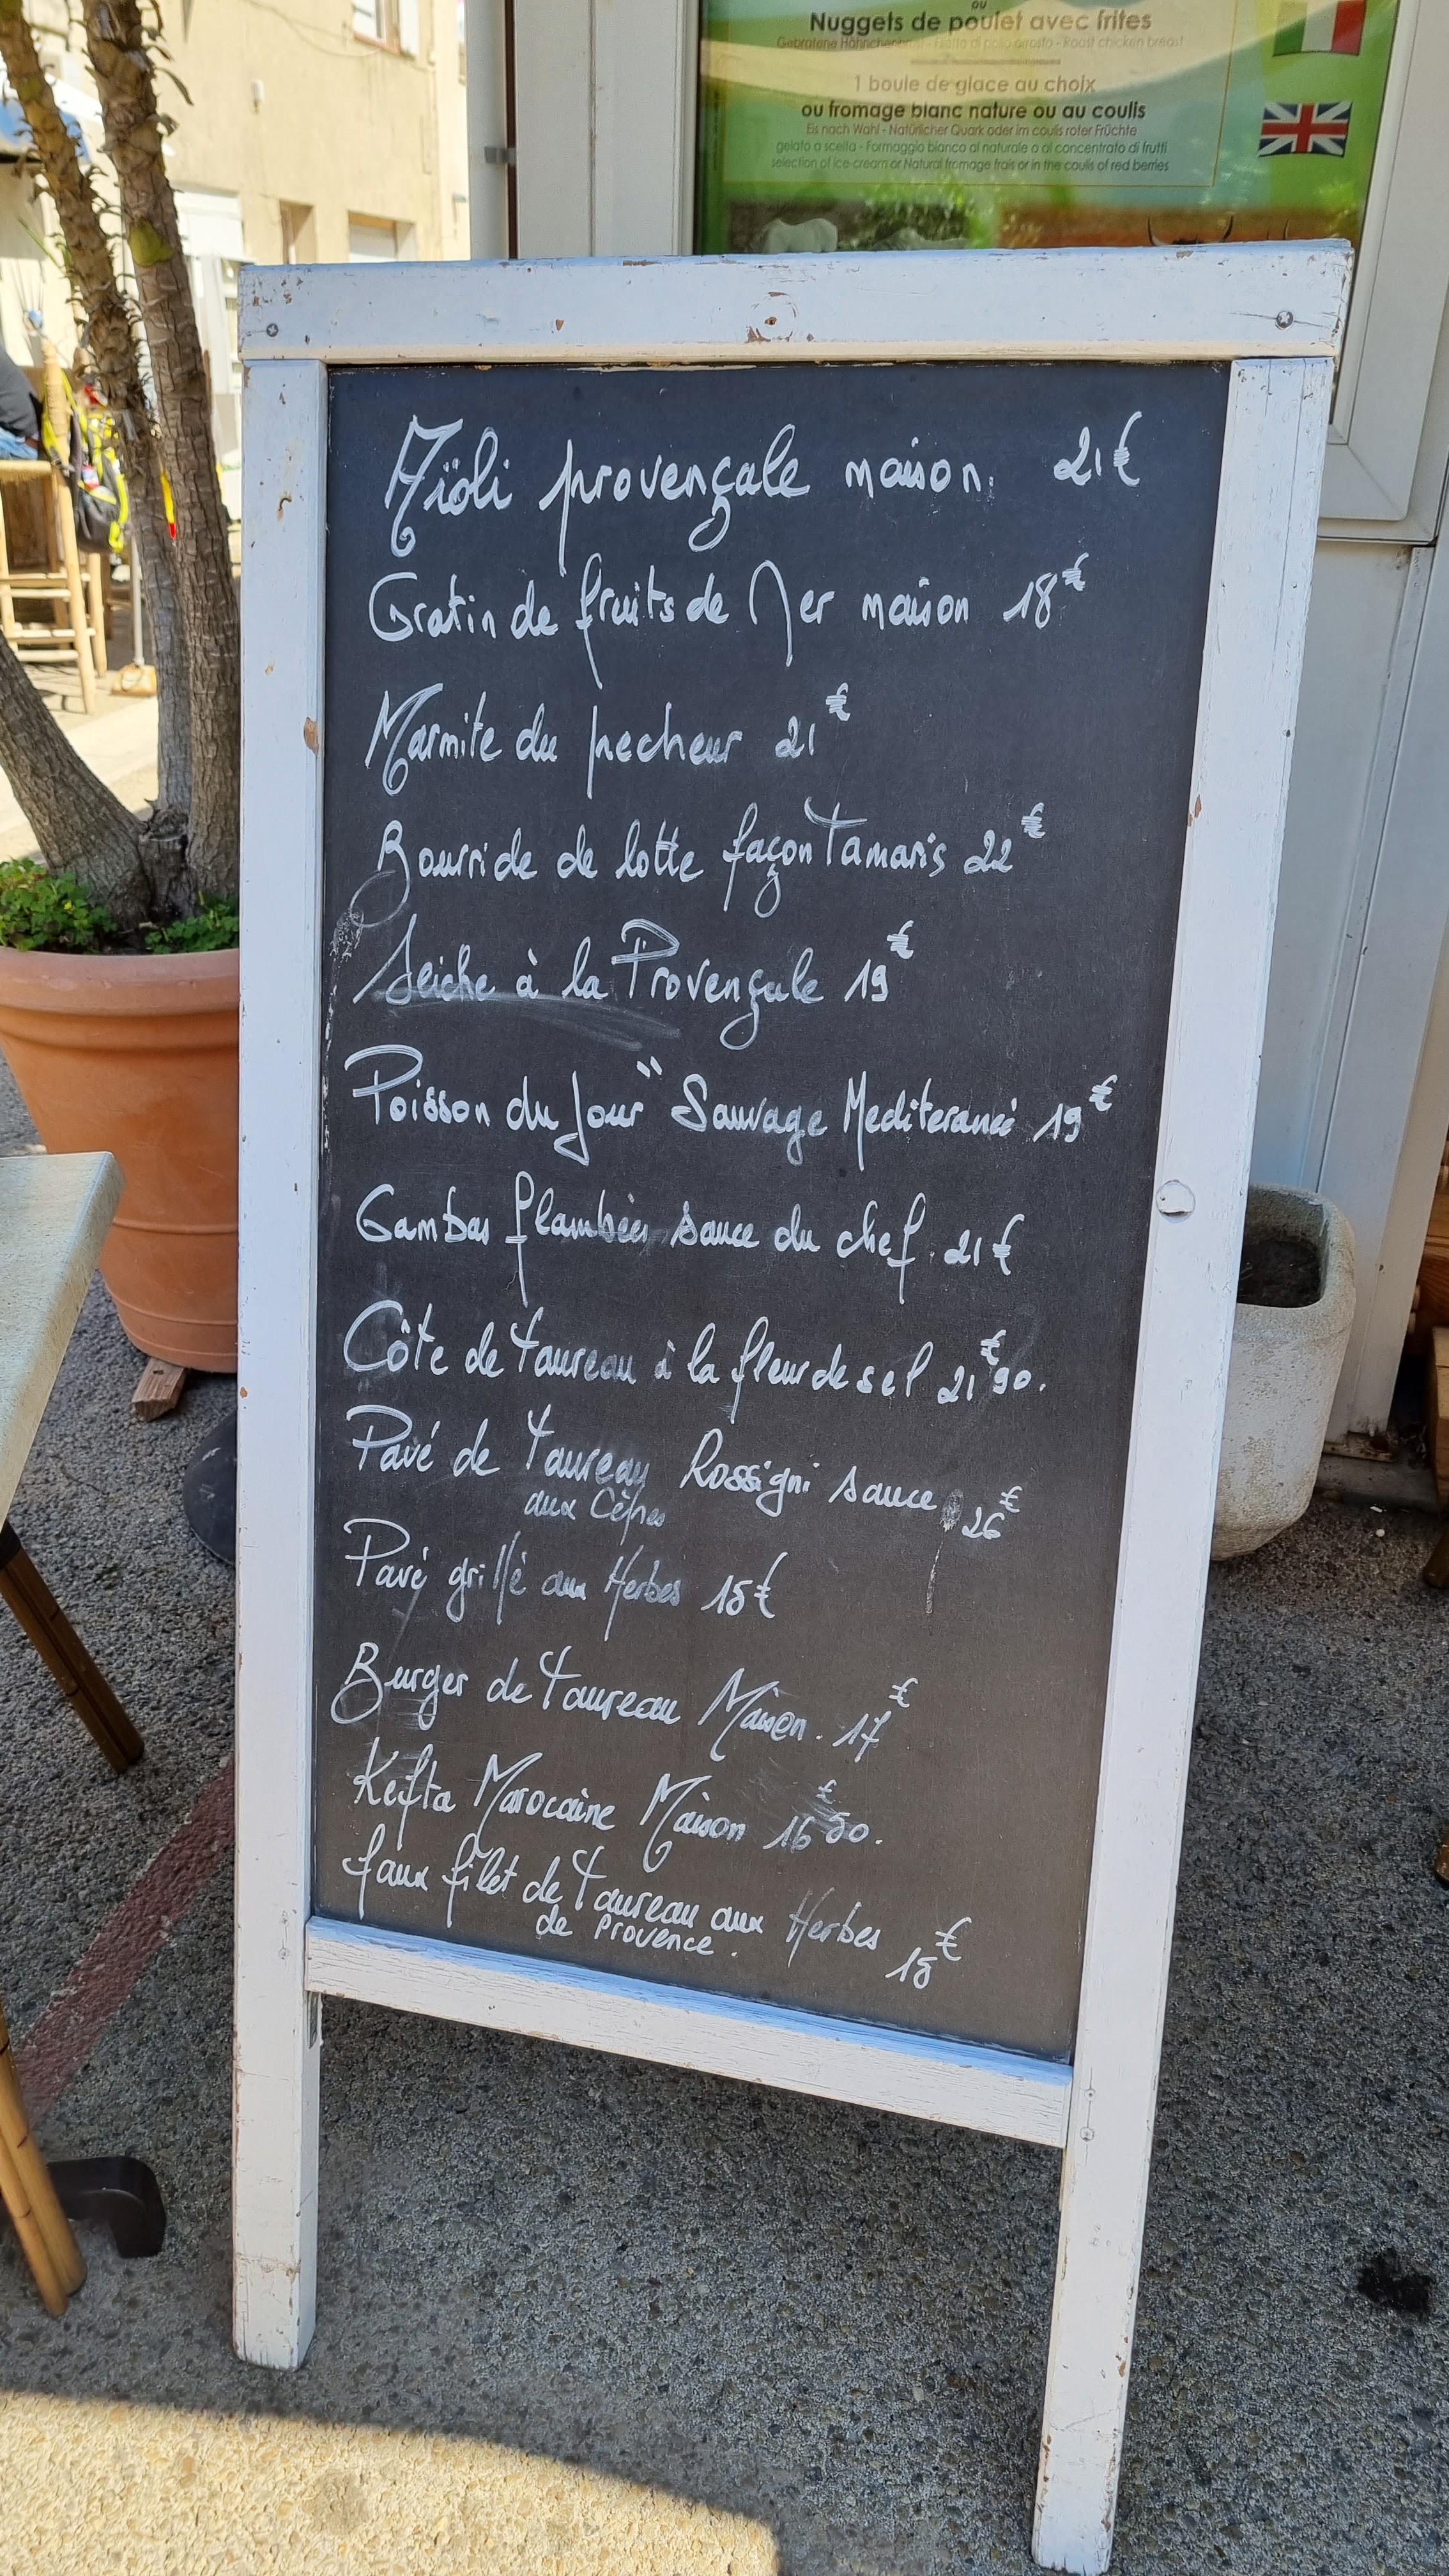 ou
Nuggets de poulet avec frites
Gebratene Hähnchenbrust - Filetto di pollo arrosto - Roast chicken breast
1 boule de glace au choix
ou fromage blanc nature ou au coulis
Eis nach Wahl - Natürlicher Quark oder im coulis roter Früchte
gelato a scelta - Formaggio bianco al naturale o al concentrato di frutti
selection of ice-cream or Natural fromage frais or in the coulis of red berries
Aïoli provençale maison. 21€
Gratin de fruits de Mer maison 18€
Marmite du pecheur 21€
Bourride de lotte façon Tamaris 22€
Seiche à la Provençale 19€
Poisson du Jour " Sauvage Mediteranée 19€
Gambas flambées sauce du chef. 21€
Côte de taureau à la fleur de sel 21€90.
Pavé de Taureau Rossigni sauce 26€
aux Cèpes
Pavé grillé aux Herbes 15€
Burger de Taureau Maison. 17€
Kefta Marocaine Maison 16€50.
faux filet de Taureau aux Herbes 15€
de Provence.